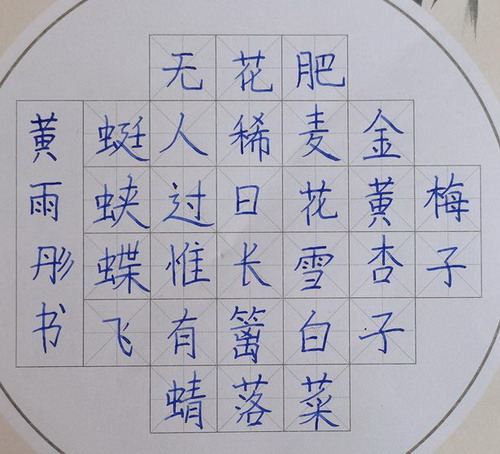 梅子
金黄杏子
肥麦花雪白菜
花稀日长篱落
无人过惟有蜻
蜓蛱蝶飞
黄雨彤书